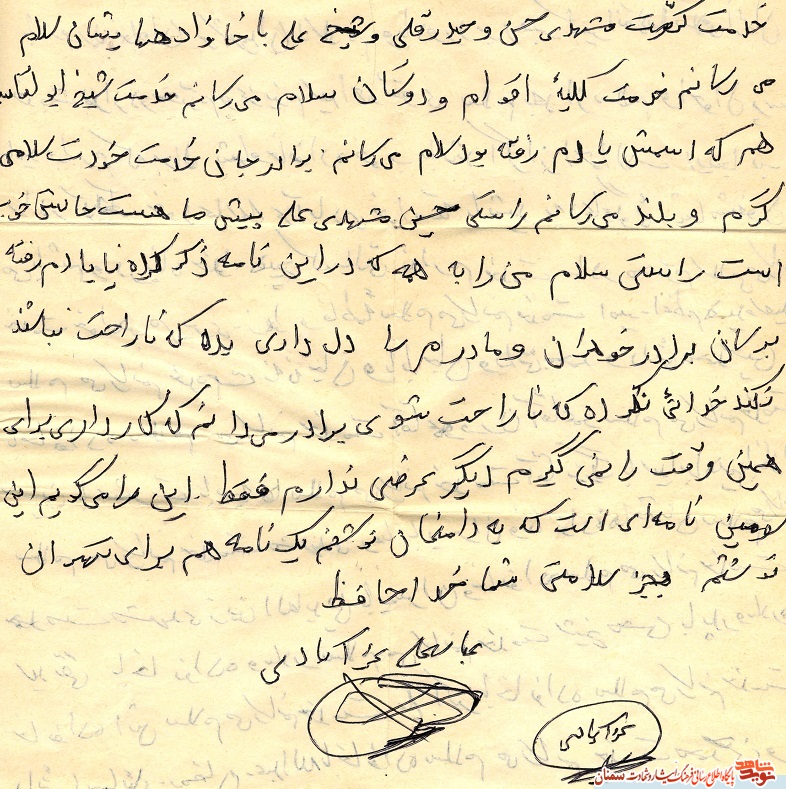 خدمت مشهدی حسن و حیدرقلی و شیخ علی با خانواده هایشان سلام
می رسانم خدمت کلیهٔ اقوام و دوستان سلام می رسانم خدمت شیخ ابولقاسم
هم که اسمش یادم رفته بود سلام می رسانم. برادر جان خدمت خودت سلامی
گرم و بلند می رسانم راستی حسین مشهدی علی پیش ما هست حالش خوب
است راستی سلام من را به همه که در این نامه ذکر کرده یا یادم رفته
برسان برادر خواهران و مادرم را دل داری بده که ناراحت نباشند
نکند خدائی نکرده که ناراحت شوی برادر می دانم که کار داری برای
همین وقت را نمی گیرم دیگر عرضی ندارم فقط این را می گویم این
سومین نامه ای است که به دامغان نوشتم یک نامه هم برای تهران
نوشتم بجز سلامتی شما خداحافظ
عباسعلی
پایگاه اطلاع رسانی فرهنگ ایثار و شهادت سمنان
نوید شاهد